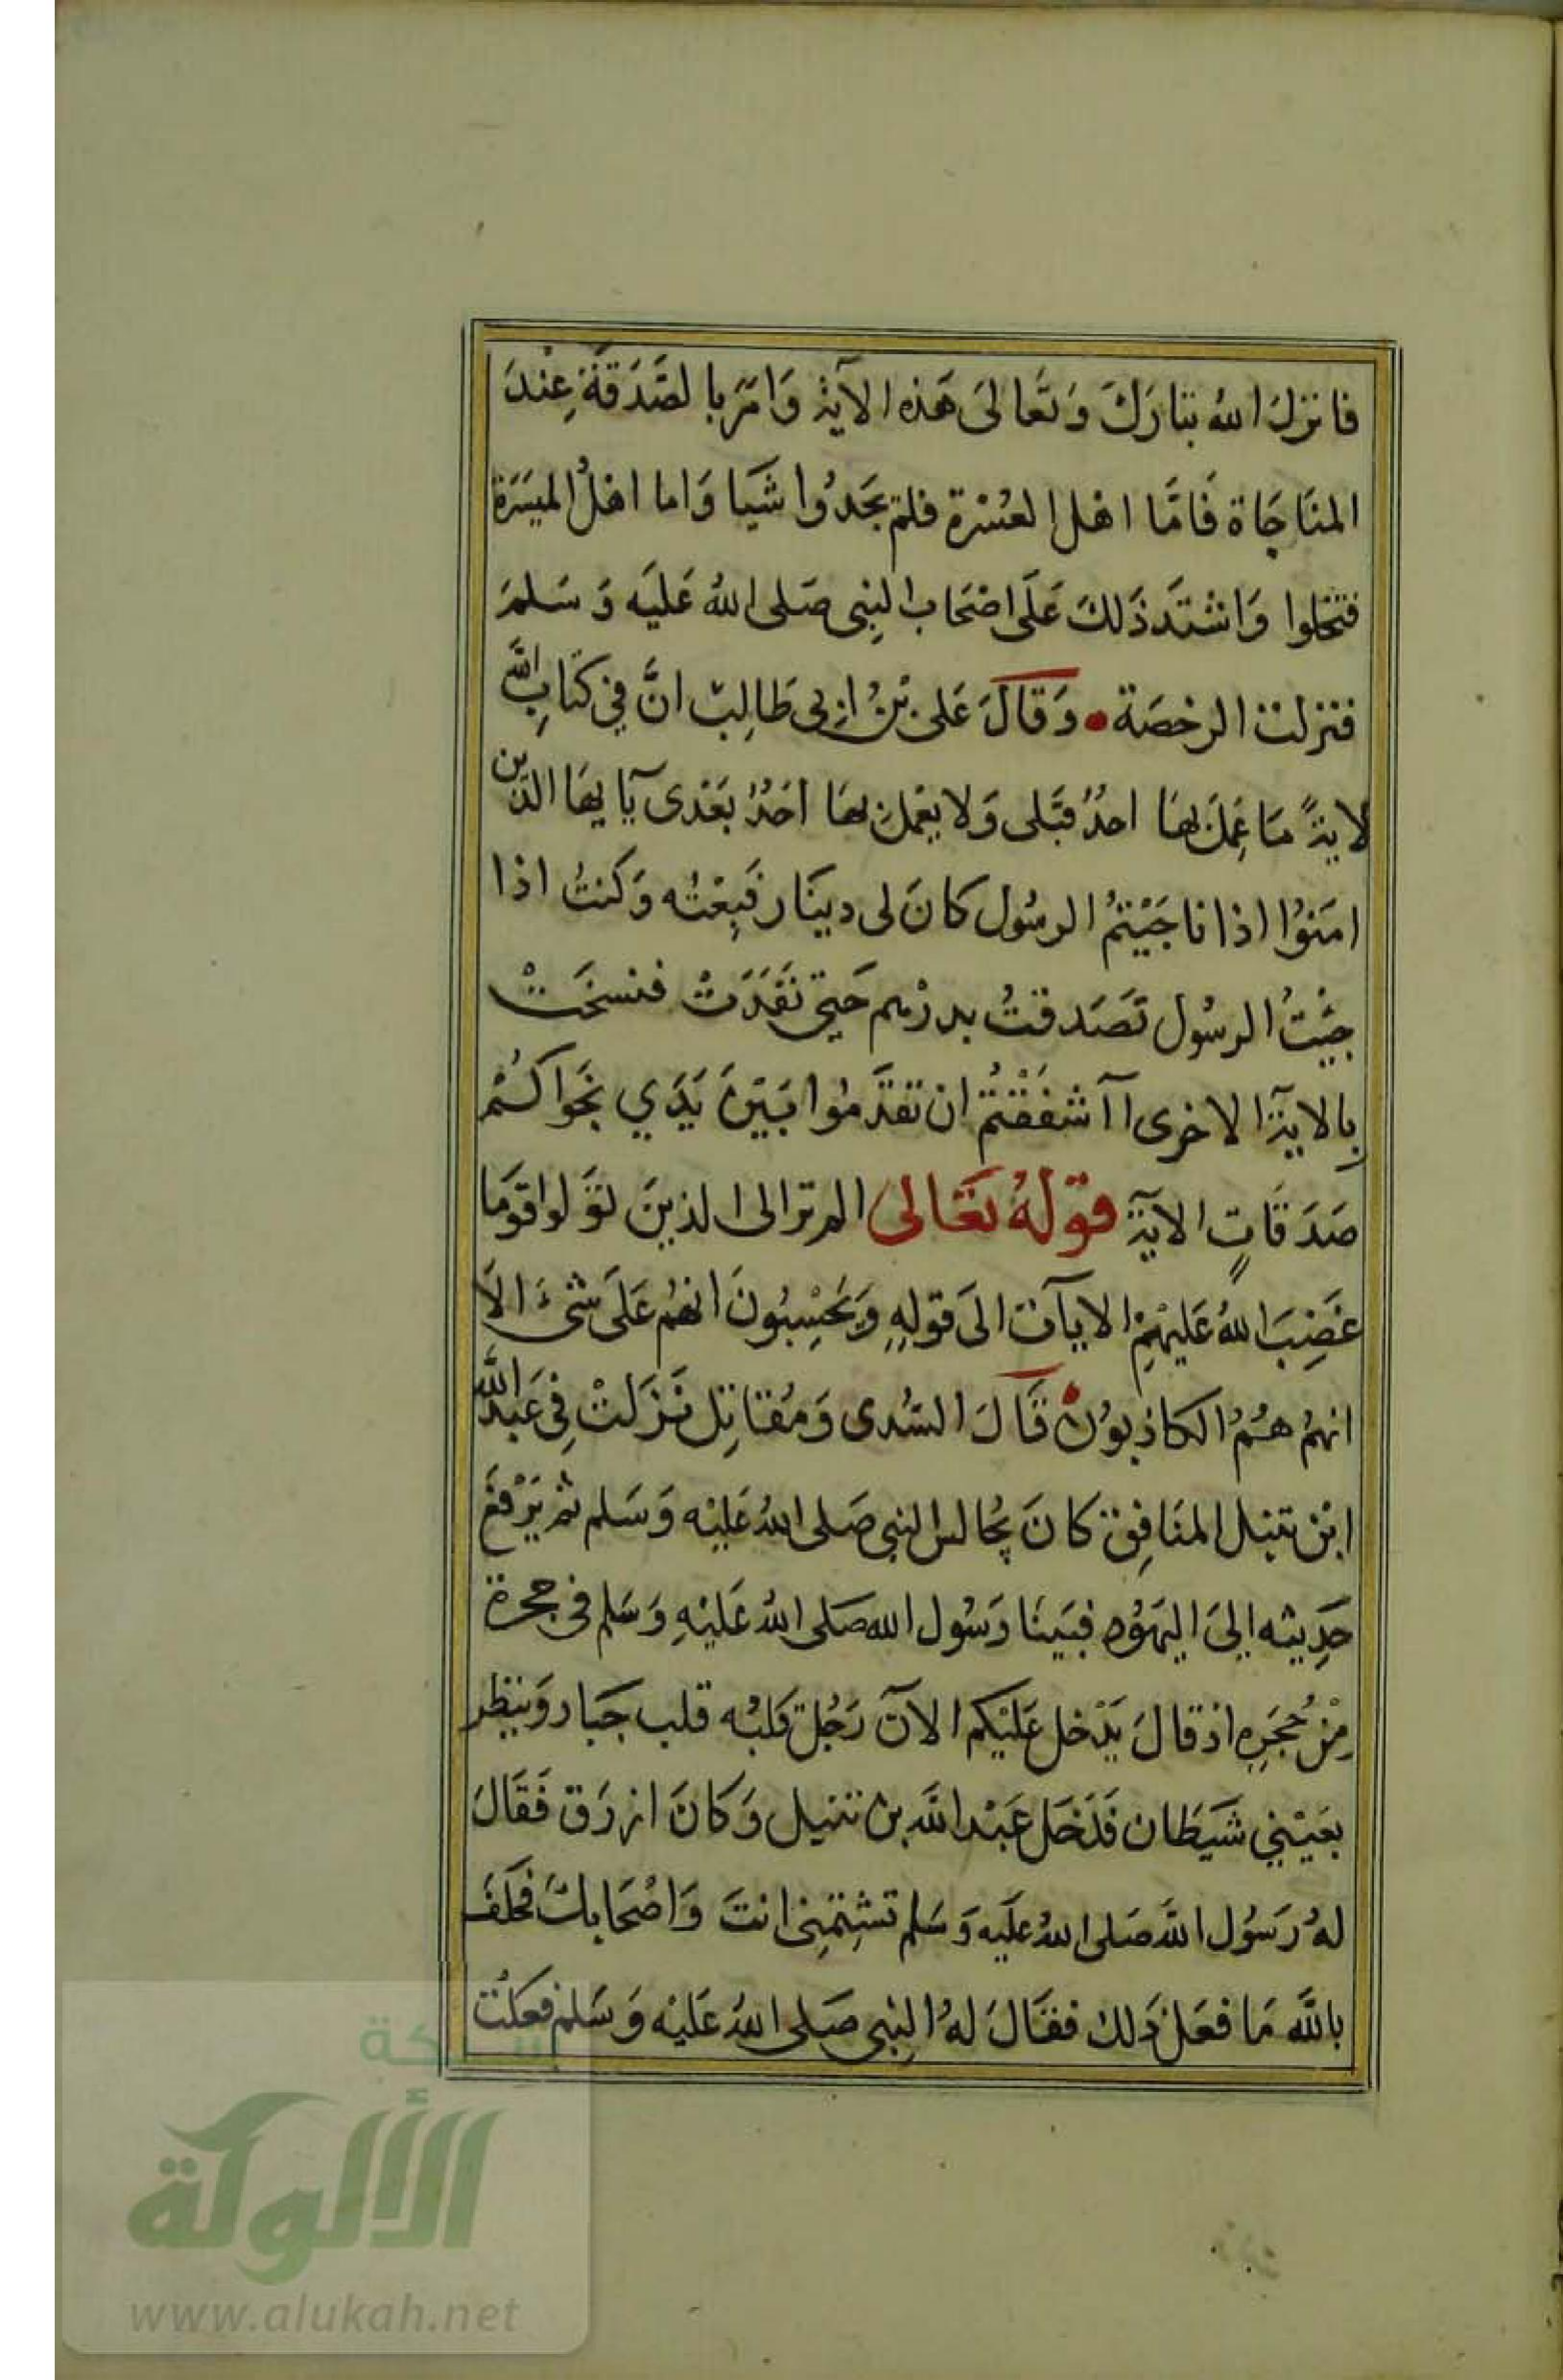 فانزل الله تبارك وتعالى هذه الآية وامر بالصدقة عند
المناجاة فاما اهل العسرة فلم يجدوا شيا واما اهل الميسرة
فبخلوا واشتد ذلك على اصحاب النبي صلى الله عليه وسلم
فنزلت الرخصة • وقال على بن ابى طالب ان في كتاب الله
لاية ما عمل بها احد قبلى ولا يعمل بها احد بعدى يآيها الذين
امنوا اذا ناجيتم الرسول كان لى دينار فبعته وكنت اذا
جيت الرسول تصدقت بدرهم حتى نفدت فنسخت
بالاية الاخرى اآشفقتم ان تقدموا بين يدي نجواكم
صدقات الآية قوله تعالى الم تر الى الذين تولوا قوما
غضب الله عليهم الايآت الى قوله ويحسبون انهم على شىء الا
انهم هم الكاذبون قال السدى ومقاتل نزلت في عبد الله
ابن نبتل المنافق كان يجالس النبي صلى الله عليه وسلم ثم يرفع
حديثه الى اليهود فبينا رسول الله صلى الله عليه وسلم في حجرة
من حجره اذ قال يدخل عليكم الآن رجل قلبه قلب جبار وينظر
بعيني شيطان فدخل عبد الله بن نبتل وكان ازرق فقال
له رسول الله صلى الله عليه وسلم تشتمنى انت واصحابك فحلف
بالله ما فعل ذلك فقال له النبي صلى الله عليه وسلم فعلت
شبكة
الألوكة
www.alukah.net